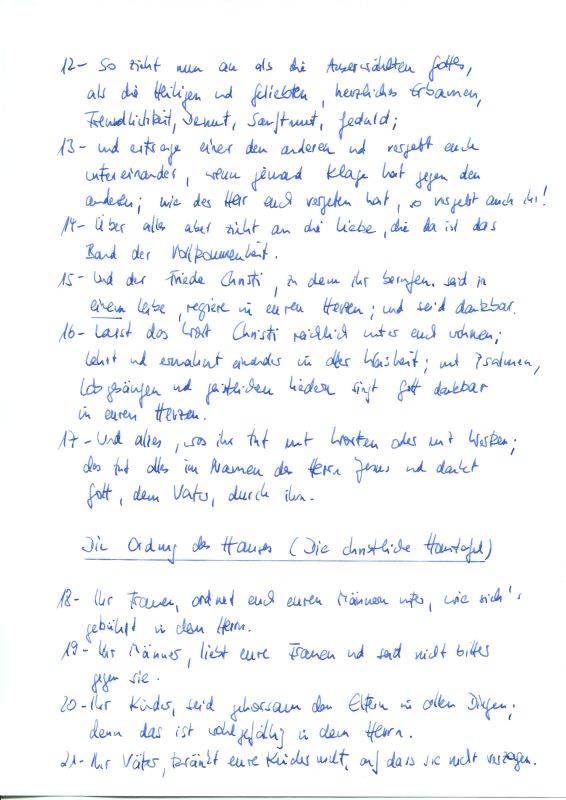 12- So zieht nun an als die Auserwählten Gottes,
als die Heiligen und Geliebten, herzliches Erbarmen,
Freundlichkeit, Demut, Sanftmut, Geduld;
13- und ertrage einer den anderen und vergebt euch
untereinander, wenn jemand Klage hat gegen den
anderen; wie der Herr euch vergeben hat, so vergebt auch ihr!
14- Über alles aber zieht an die Liebe, die da ist das
Band der Vollkommenheit.
15- Und der Friede Christi, zu dem ihr berufen seid in
einem Leibe, regiere in euren Herzen; und seid dankbar.
16- Lasst das Wort Christi reichlich unter euch wohnen;
lehrt und ermahnt einander in aller Weisheit; mit Psalmen,
Lobgesängen und geistlichen Liedern singt Gott dankbar
in euren Herzen.
17- Und alles, was ihr tut mit Worten oder mit Werken;
das tut alles im Namen des Herrn Jesus und dankt
Gott, dem Vater, durch ihn.
Die Ordnung des Hauses (Die christliche Haustafel)
18- Ihr Frauen, ordnet euch euren Männern unter, wie sich's
gebührt in dem Herrn.
19- Ihr Männer, liebt eure Frauen und seid nicht bitter
gegen sie.
20- Ihr Kinder, seid gehorsam den Eltern in allen Dingen;
denn das ist wohlgefällig in dem Herrn.
21- Ihr Väter, kränkt eure Kinder nicht, auf dass sie nicht verzagen.